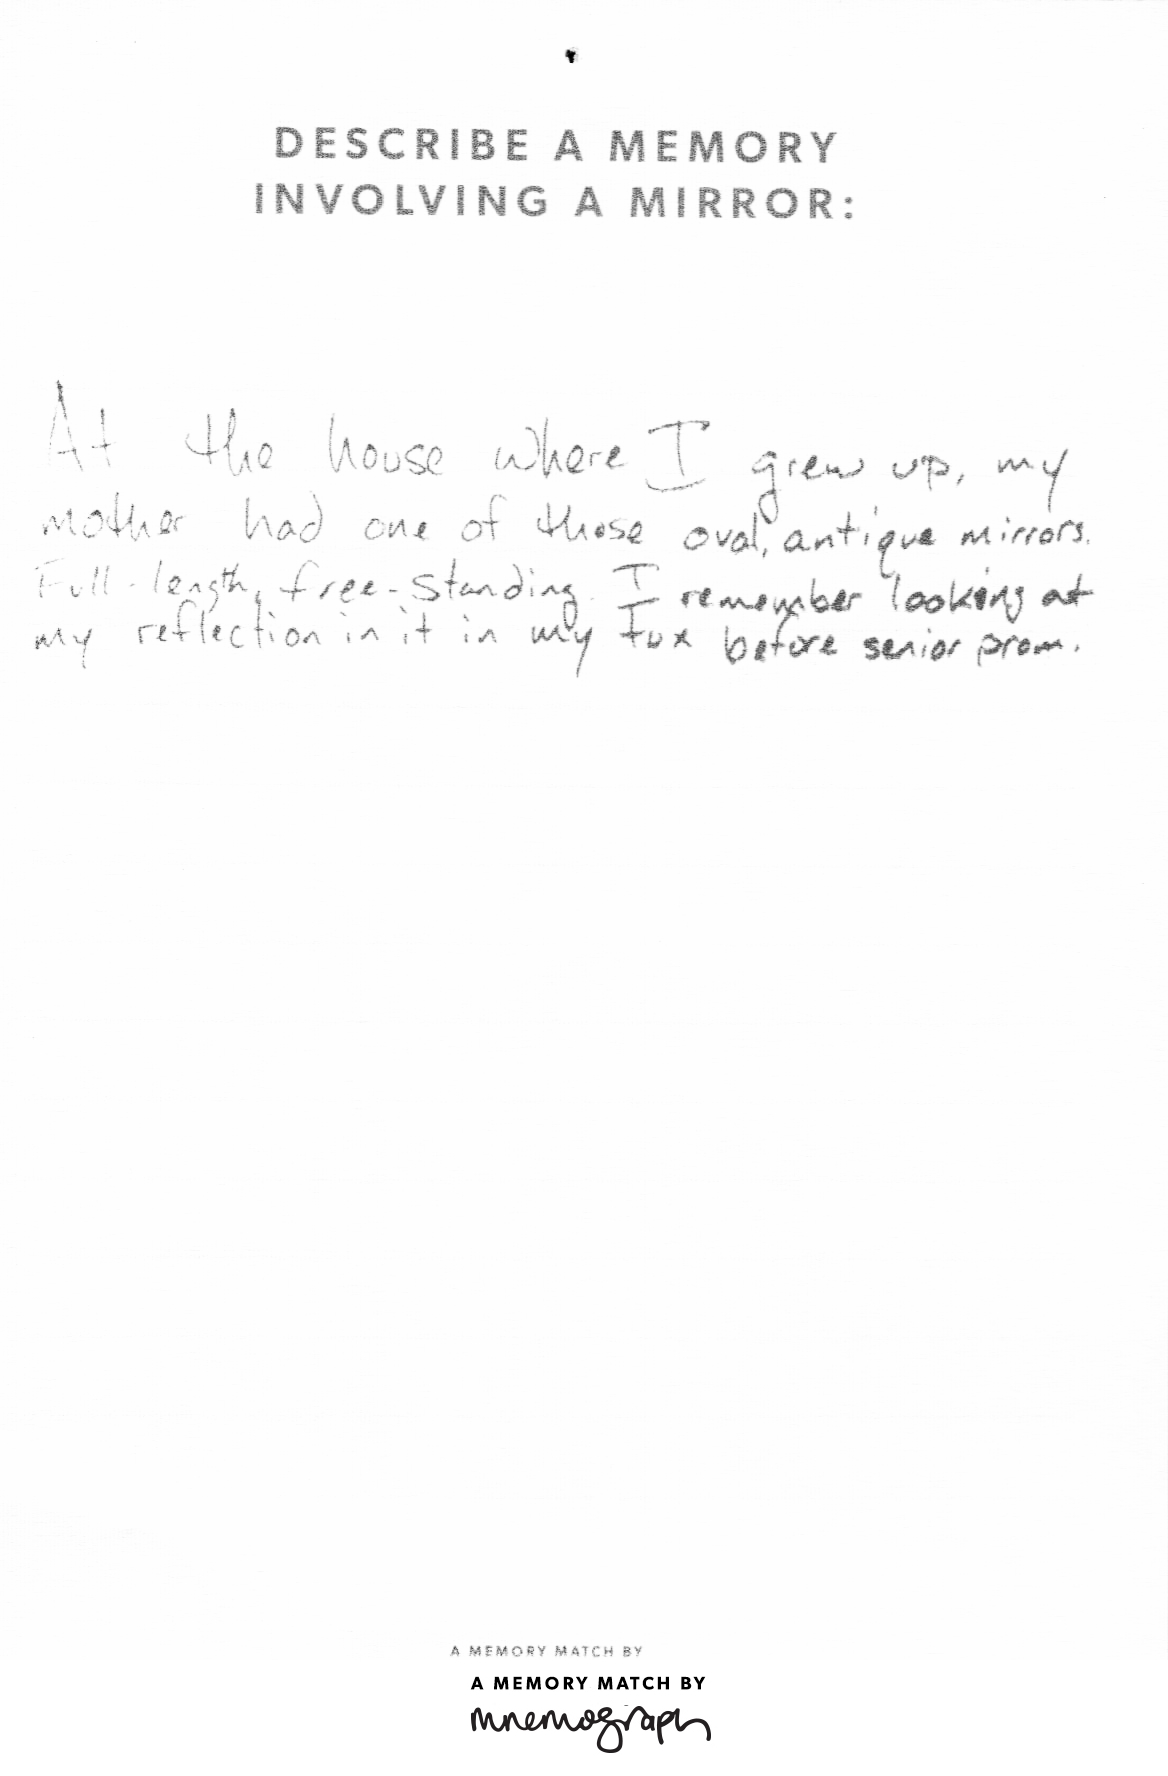 DESCRIBE A MEMORY
INVOLVING A MIRROR:
At the house where I grew up, my
mother had one of those oval, antique mirrors.
Full-length, free-standing. I remember looking at
my reflection in it in my tux before senior prom.
A MEMORY MATCH BY
A MEMORY MATCH BY
mnemograph